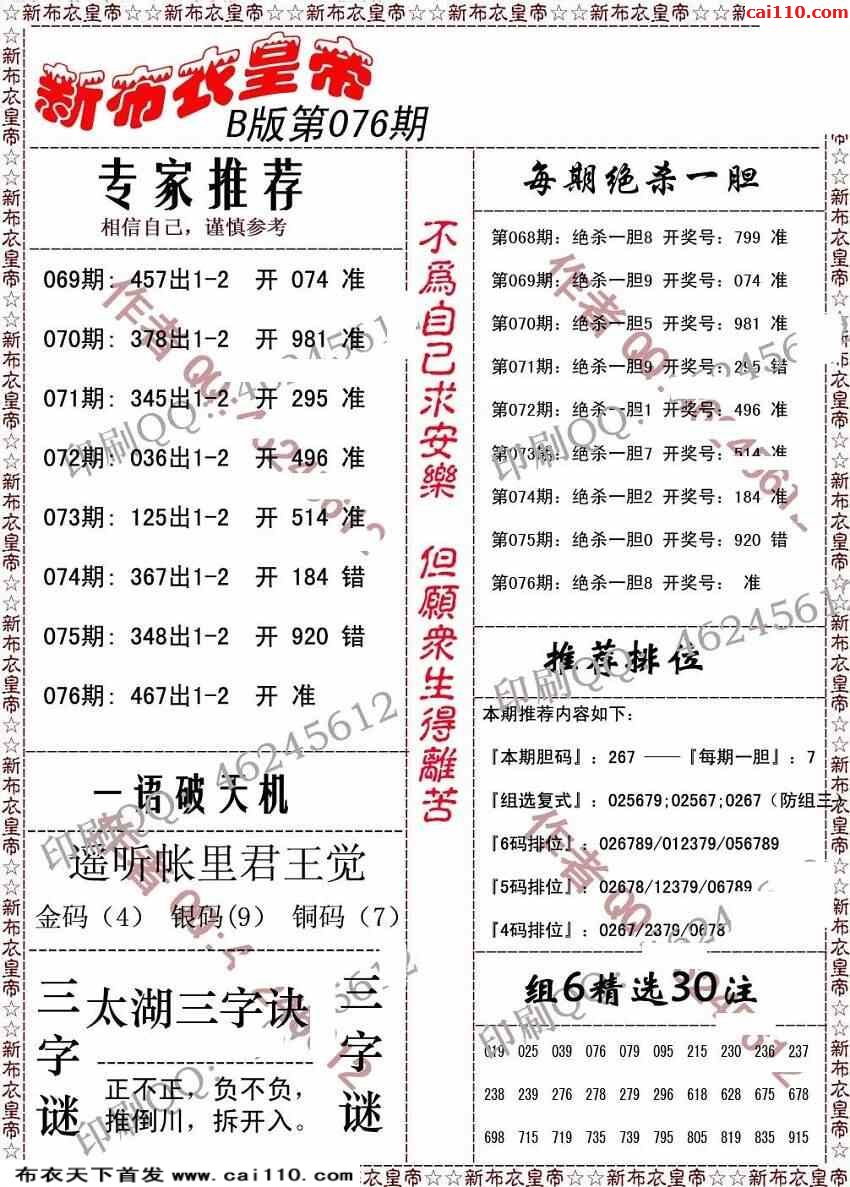 ☆☆新布衣皇帝☆☆新布衣皇帝☆☆新布衣皇帝☆☆新布衣皇帝☆☆新布衣皇帝☆☆新布衣皇帝☆☆新
cai110.com
新布衣皇帝
B版第076期
专家推荐
相信自己，谨慎参考
069期: 457出1-2 开 074 准
070期: 378出1-2 开 981 准
071期: 345出1-2 开 295 准
072期: 036出1-2 开 496 准
073期: 125出1-2 开 514 准
074期: 367出1-2 开 184 错
075期: 348出1-2 开 920 错
076期: 467出1-2 开 准
一语破天机
遥听帐里君王觉
金码（4） 银码(9) 铜码（7）
三字谜
太湖三字诀
正不正，负不负，
推倒川，拆开入。
三字谜
不為自己求安樂 但願衆生得離苦
每期绝杀一胆
第068期: 绝杀一胆8 开奖号: 799 准
第069期: 绝杀一胆9 开奖号: 074 准
第070期: 绝杀一胆5 开奖号: 981 准
第071期: 绝杀一胆9 开奖号: 295 错
第072期: 绝杀一胆1 开奖号: 496 准
第073期: 绝杀一胆7 开奖号: 514 准
第074期: 绝杀一胆2 开奖号: 184 准
第075期: 绝杀一胆0 开奖号: 920 错
第076期: 绝杀一胆8 开奖号: 准
推荐排位
本期推荐内容如下:
『本期胆码』: 267 ——『每期一胆』: 7
『组选复式』: 025679;02567;0267（防组三）
『6码排位』: 026789/012379/056789
『5码排位』: 02678/12379/06789
『4码排位』: 0267/2379/0678
组6精选30注
019 025 039 076 079 095 215 230 236 237
238 239 276 278 279 296 618 628 675 678
698 715 719 735 739 795 805 819 835 915
印刷QQ: 46245612
作者QQ:
布衣天下首发 www.cai110.com
衣皇帝☆☆新布衣皇帝☆☆新布衣皇帝☆☆新布衣皇帝☆